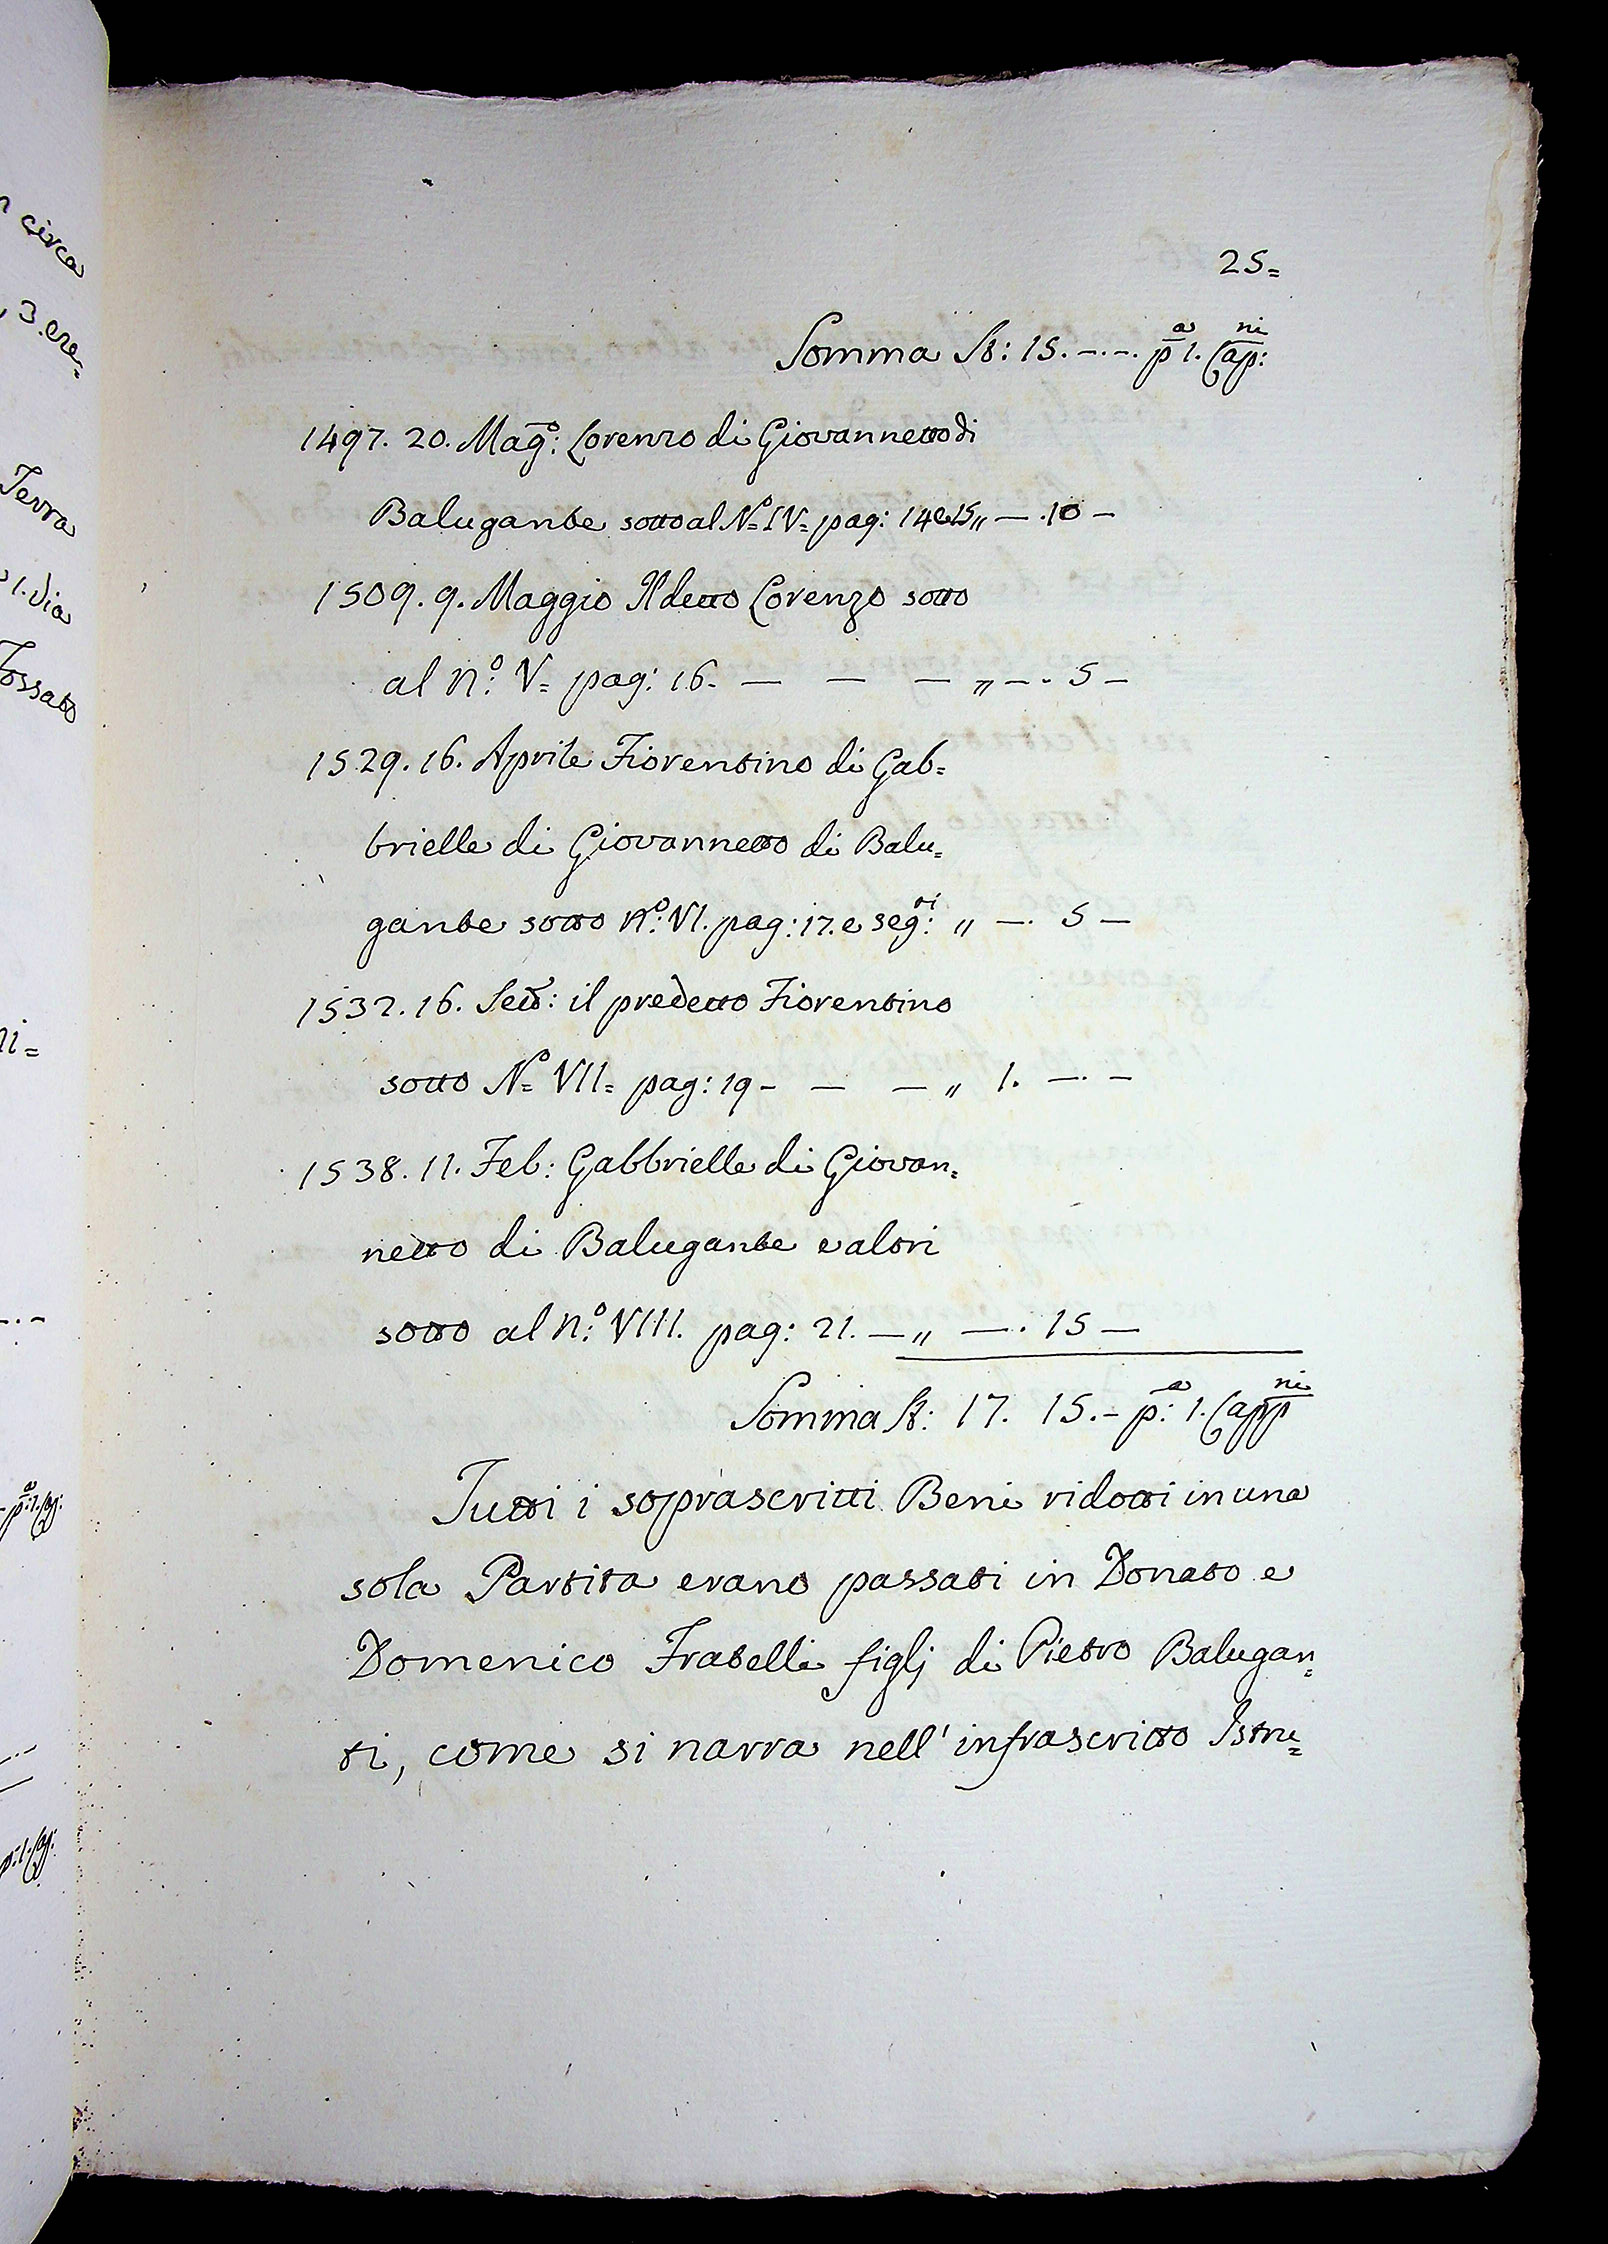 25=
Somma St: 15. -.-. p.ª 1. Cap:ⁿⁱ
1497. 20. Magº: Lorenzo di Giovannetto di
Balugante sotto al Nº= IV= pag: 14 e 15 „ — . 10 —
1509. 9. Maggio Il detto Lorenzo sotto
al nº: V= pag: 16. — — — „ — . 5 —
1529. 16. Aprile Fiorentino di Gab=
brielle di Giovannetto di Balu=
gante sotto nº: VI. pag: 17. e segᵗⁱ: „ — . 5 —
1532. 16. Sett: il predetto Fiorentino
sotto Nº= VII= pag: 19 - — — „ 1. — . —
1538. 11. Feb: Gabbrielle di Giovan=
netto di Balugante e altri
sotto al nº: VIII. pag: 21. — „ — . 15 —
Somma St: 17. 15. - p:ª 1. Capp ⁿⁱ
Tutti i soprascritti Beni ridotti in una
sola Partita erano passati in Donato e
Domenico Fratelli figlj di Pietro Balugan=
ti, come si narra nell' infrascritto Istru=
circa
3. ere=
Terra
1. via
Fossato
ni=